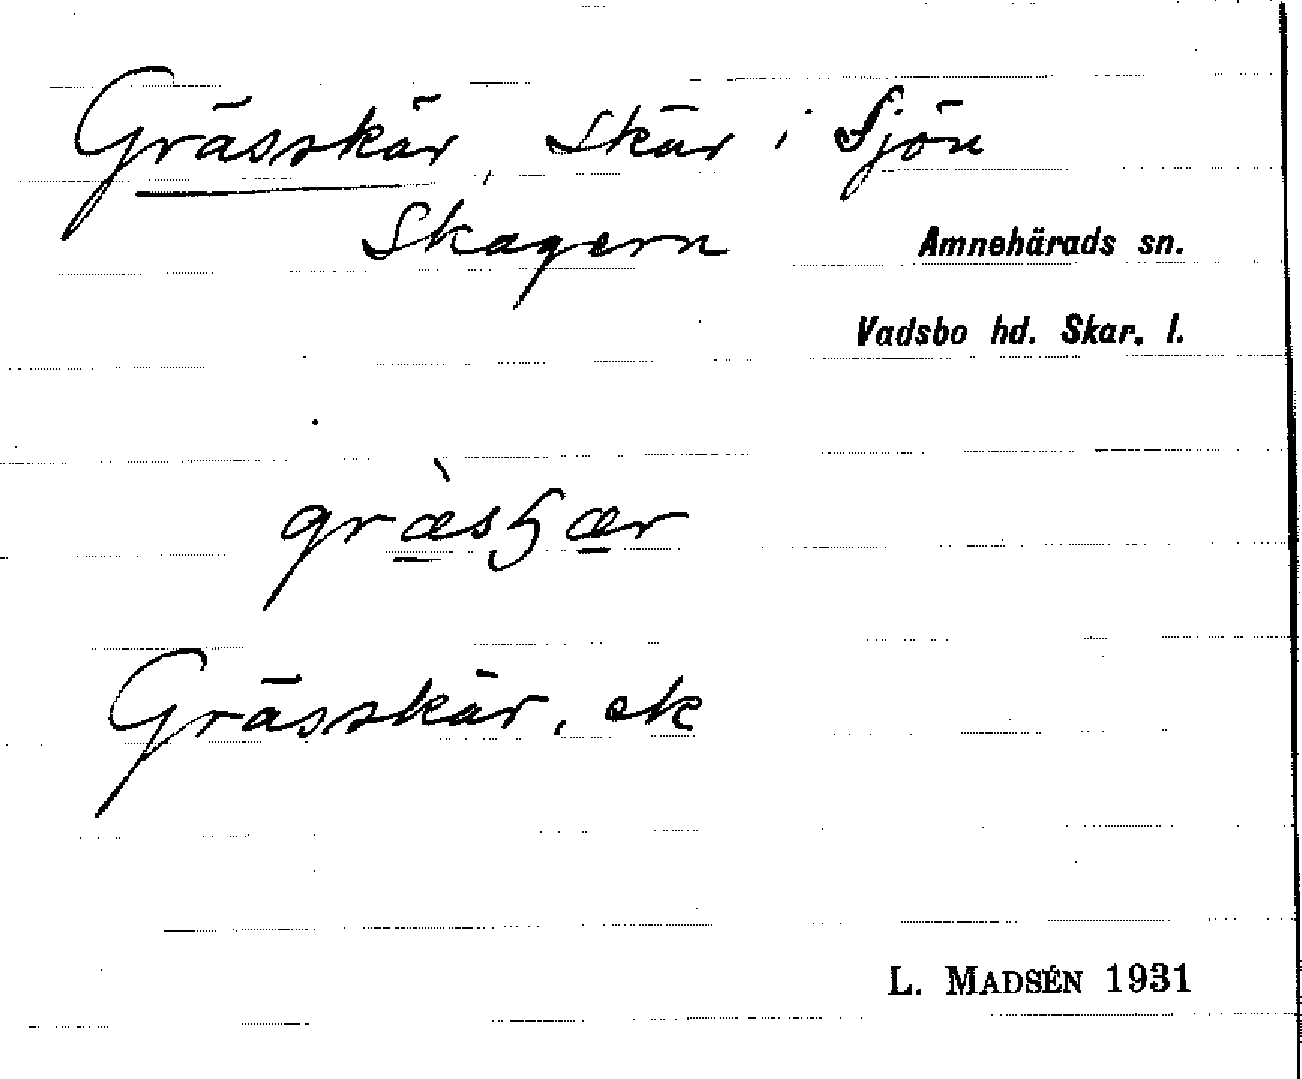 Grässkär, Skär i Sjön
Skagern
Amnehärads sn.
Vadsbo hd. Skar. l.
Grässkär, ek
L. MADSÉN 1931